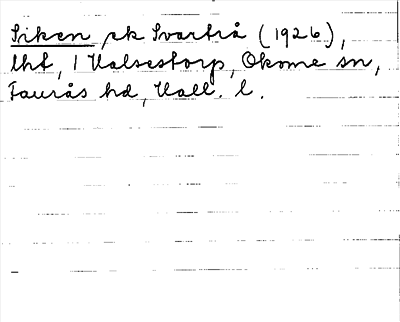 Siken, sk Svartrå (1926),
lht, 1 Valsestorp, Okome sn,
Faurås hd, Hall. l.